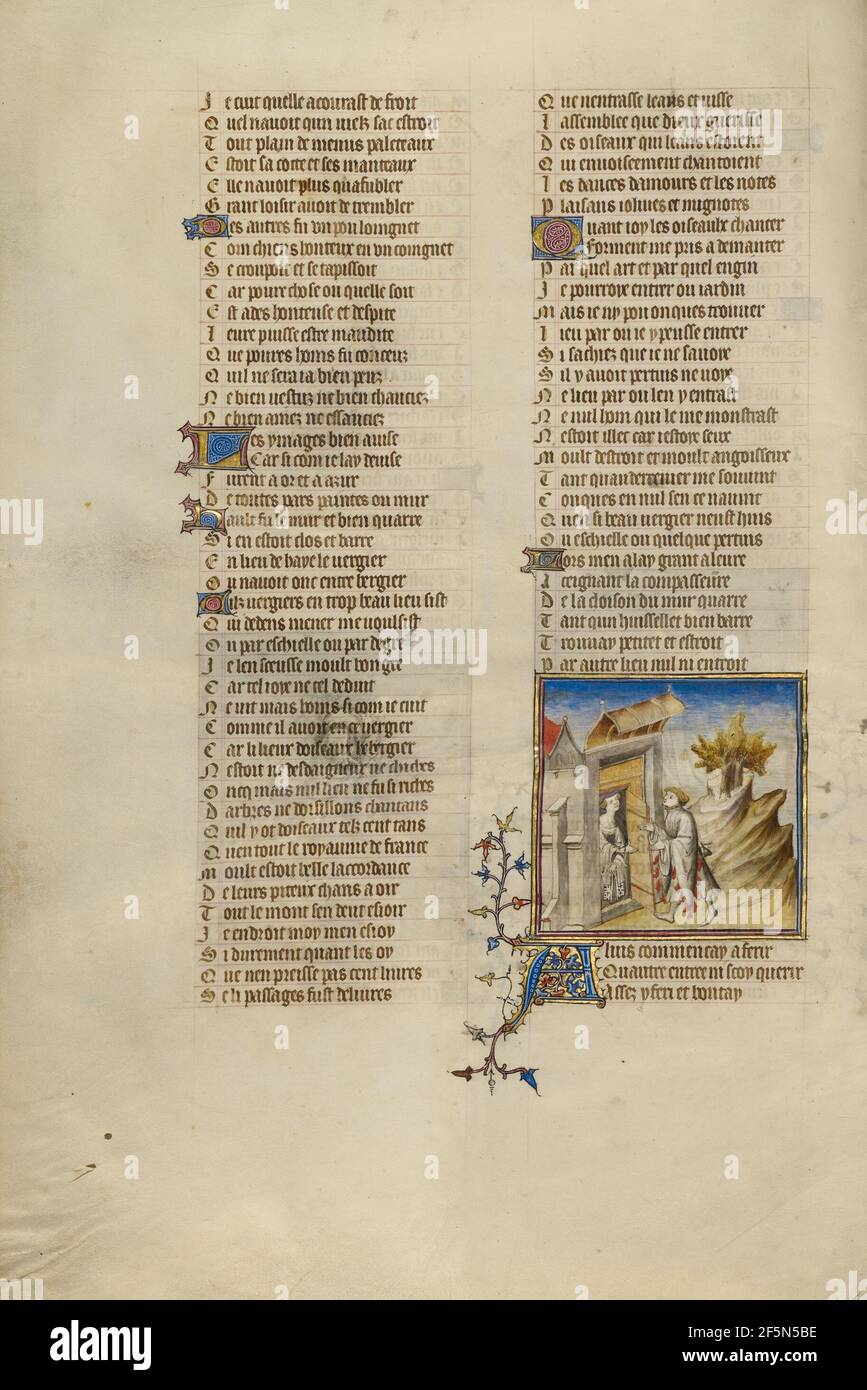 Je cuit quelle acourast de froit
Quel navoit qun vielz sac estroit
Tout plain de menus paleteaux
Estoit sa cotte et ses manteaux
Elle navoit plus quafubler
Grant loisir avoit de trembler
Des autres fu un pou loingnet
Com chiens honteux en un coingnet
Se croupoit et se tapissoit
Car poure chose ou quelle soit
Est ades honteuse et despite
Leure puisse estre maudite
Que poures homs fu conceuz
Quil ne sera ia bien peuz
Ne bien vestuz ne bien chauciez
Ne bien amez ne essauciez
Les ymages bien avise
Car si com ie lay devise
Furent a or et a azur
De toutes pars paintes ou mur
Hault fu le mur et bien quarre
Si en estoit clos et barre
En lieu de haye le vergier
Ou navoit onc entre bergier
Cilz vergiers en trop beau lieu sist
Qui dedens mener me voulsist
Ou par eschielle ou par degre
Je len sceusse moult bon gre
Car tel ioye ne tel deduit
Ne vit mais homs si com ie cuit
Comme il avoit en ce vergier
Car li lieux doiseaux hebergier
Nestoit ne desdaigneux ne chiches
Oncq mais nul lieu ne fu si riches
Darbres ne doysillons chantans
Quil y ot doiseaux telz cent tans
Quen tout le royaume de france
Moult estoit belle laccordance
De leurs piteux chans a oir
Tout le mont sen deut esioir
Je endroit moy men esioy
Si durement quant les oy
Que nen preisse pas cent livres
Se li passages fust delivres
Que nentrasse leans et visse
Lassemblee que dieux guerisse
Des oiseaux qui leans estoient
Qui envoisieement chantoient
Les dances damours et les notes
Plaisans iolives et mignotes
Quant ioy les oiseaulx chanter
Forment me pris a demanter
Par quel art et par quel engin
Je pourroye entrer ou iardin
Mais ie ny pou onques trouver
Lieu par ou ie y peusse entrer
Si sachiez que ie ne savoie
Sil y avoit pertuis ne voye
Ne lieu par ou len y entrast
Ne nul hom qui le me monstrast
Nestoit illec car iestoye seux
Moult destroit et moult angoisseux
Tant quau derrenier me souvint
Conques en nul sen ce navint
Quen si beau vergier neust huis
Ou eschielle ou quelque pertuis
Lors men alay grant aleure
Aceignant la compasseure
De la cloison du mur quarre
Tant qun huissellet bien barre
Trouvay petitet et estroit
Par autre lieu nul ni entroit
A luis commencay a ferir
Quautre entree ni scoy querir
Assez y feri et boutay
a
alamy
Image ID: 2F5N5BE
www.alamy.com